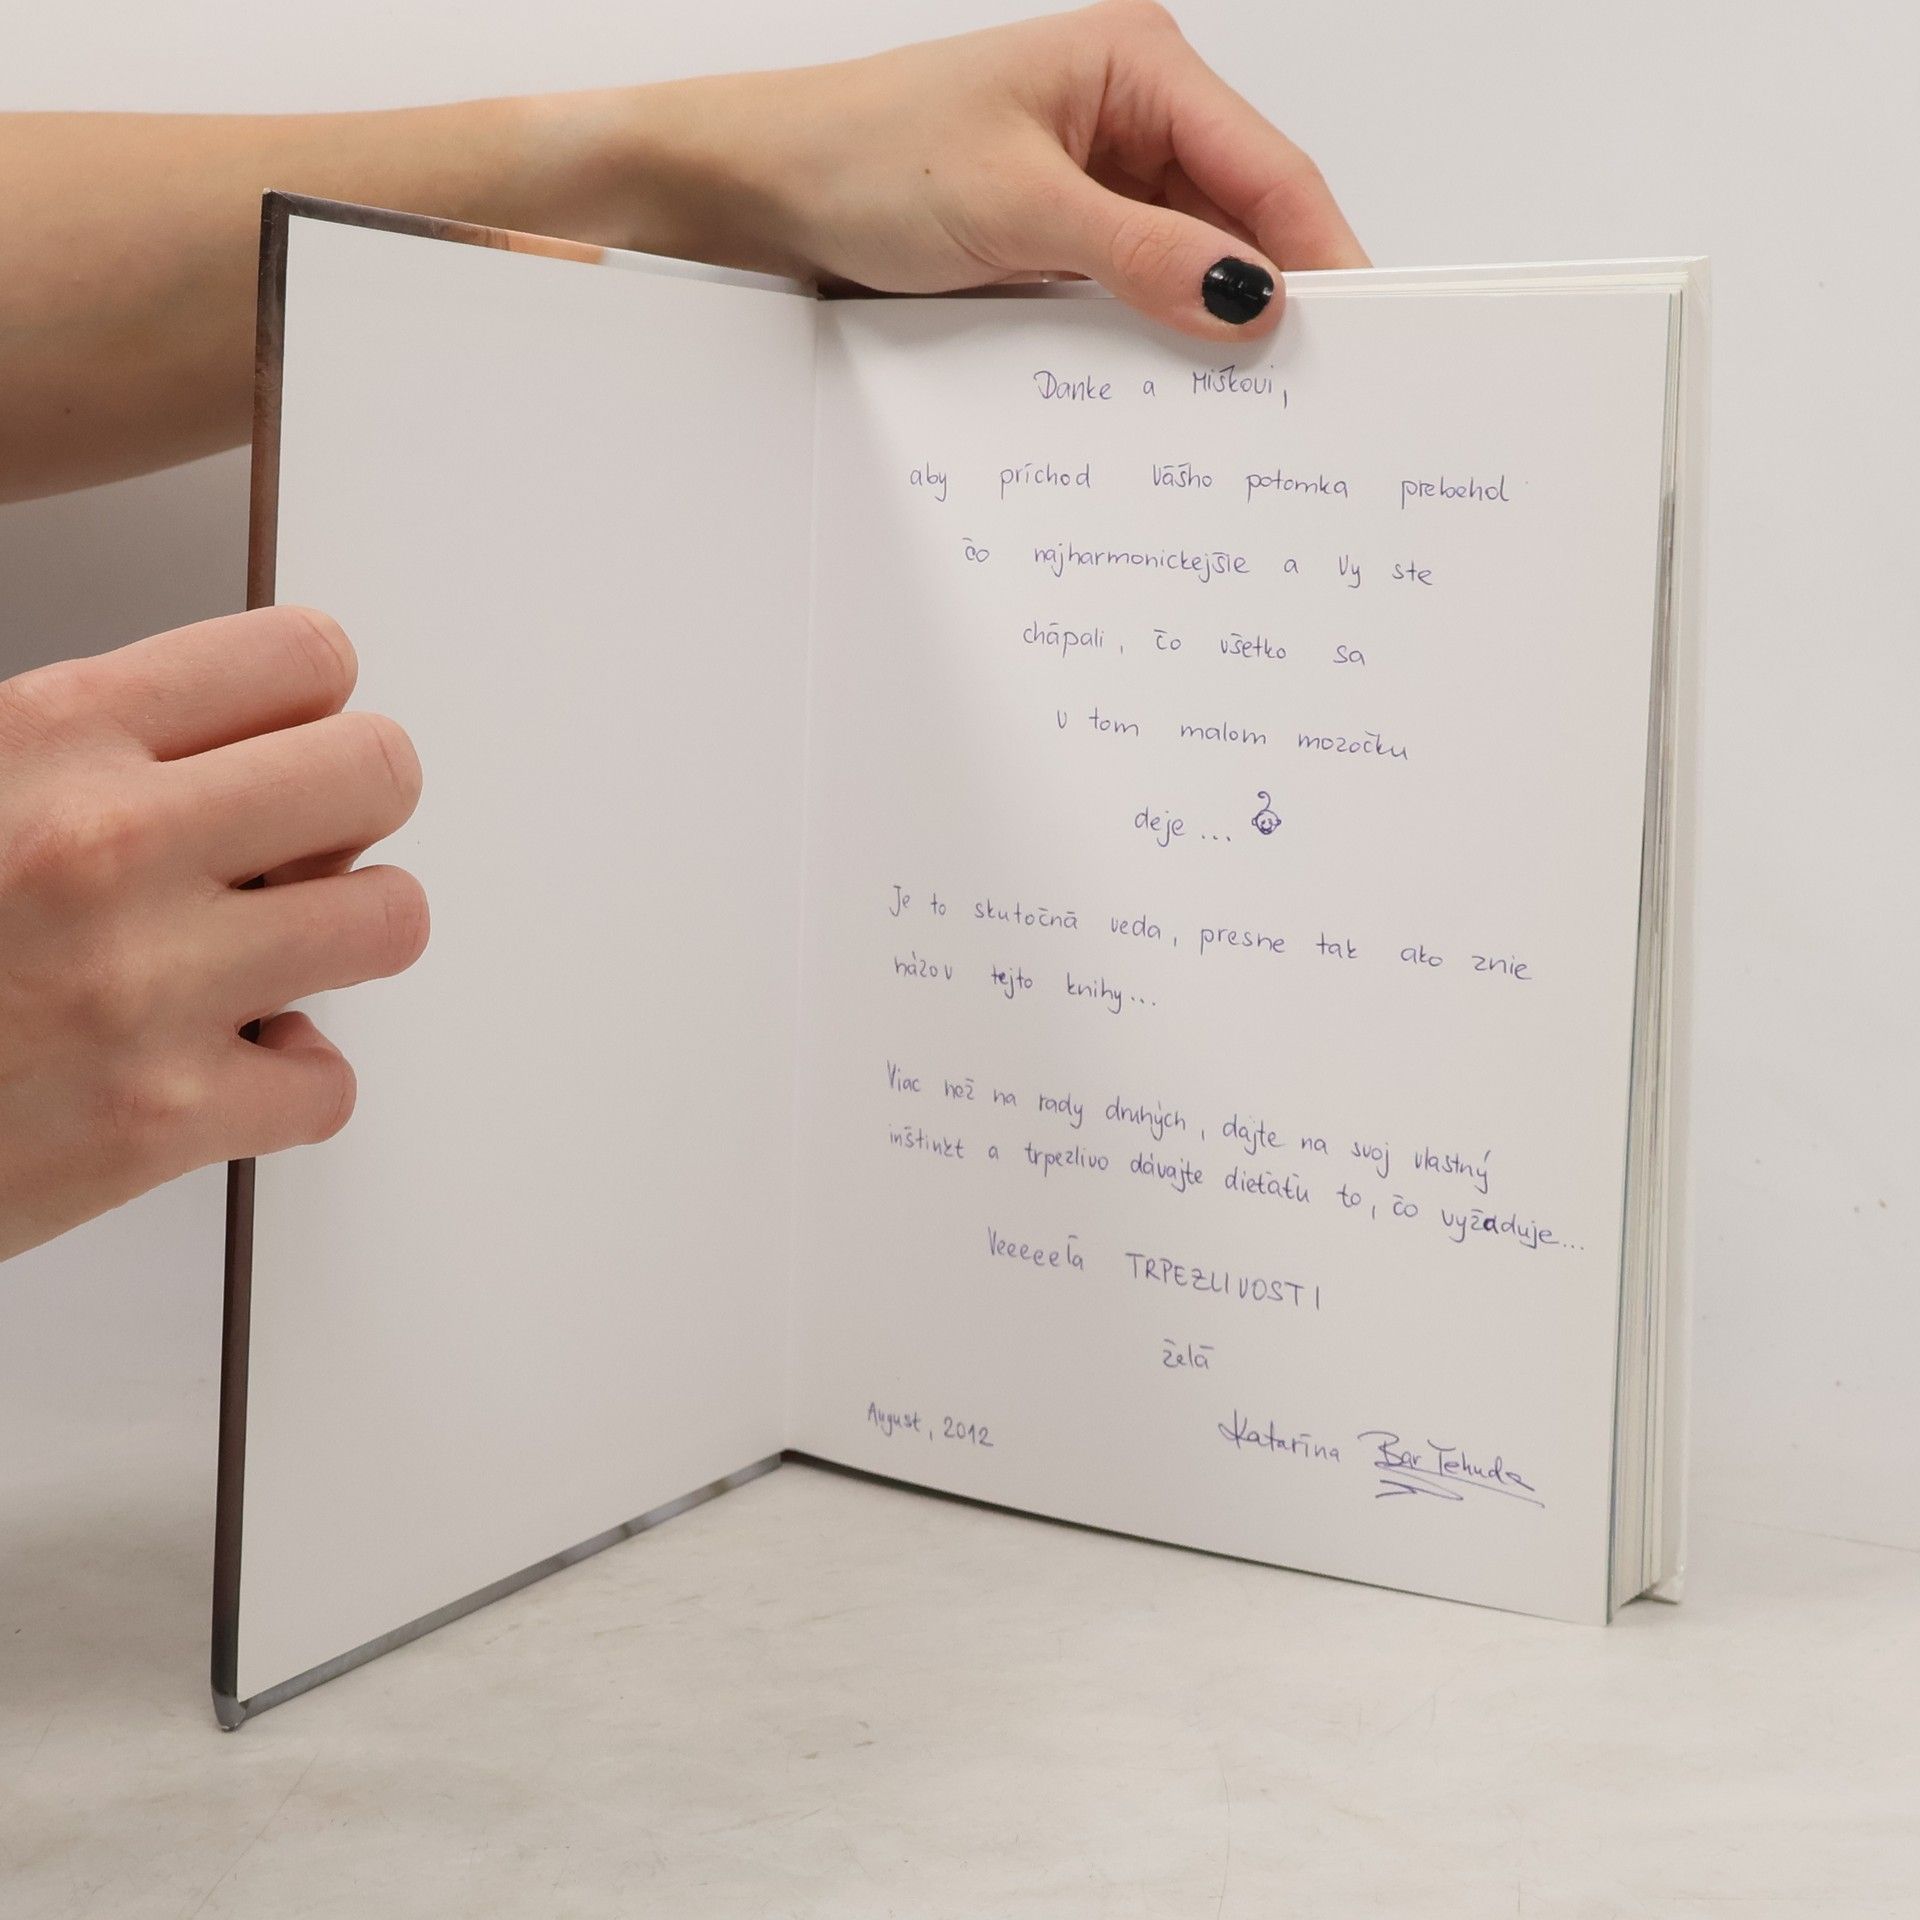 Danke a Miškovi,
aby príchod Vášho potomka prebehol
čo najharmonickejšie a Vy ste
chápali, čo všetko sa
v tom malom mozočku
deje...
Je to skutočná veda, presne tak ako znie
názov tejto knihy...
Viac než na rady druhých, dajte na svoj vlastný
inštinkt a trpezlivo dávajte dieťaťu to, čo vyžaduje...
Veeeeeľa TRPEZLIVOSTI
želá
August, 2012 Katarína Bar Yehuda